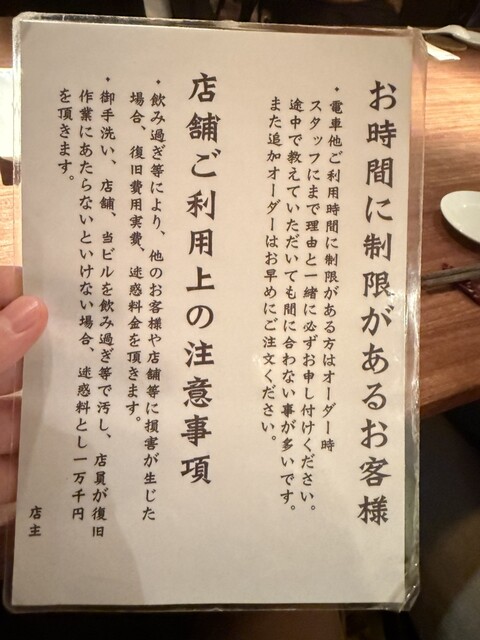 お時間に制限があるお客様
・電車他ご利用時間に制限がある方はオーダー時
スタッフにまで理由と一緒に必ずお申し付けください。
途中で教えていただいても間に合わない事が多いです。
また追加オーダーはお早めにご注文ください。
店舗ご利用上の注意事項
・飲み過ぎ等により、他のお客様や店舗等に損害が生じた
場合、復旧費用実費、迷惑料金を頂きます。
・御手洗い、店舗、当ビルを飲み過ぎ等で汚し、店員が復旧
作業にあたらないといけない場合、迷惑料とし一万千円
を頂きます。
店主